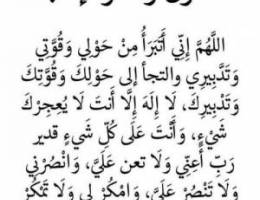 اللَّهُمَّ إِنِّي أَتَبَرَّأُ مِنْ حَوْلِي وَقُوَّتِي
وَتَدْبِيرِي والتجأ إلى حَوْلِكَ وَقُوَّتِكَ
وَتَدْبِيرِكَ، لَا إِلَهَ إِلَّا أَنتَ لَا يُعجِزْكَ
شَيْءٍ، وَأَنْتَ عَلَى كُلِّ شَيءٍ قدير
رَبِّ أَعِنِّي وَلَا تعن عَلَيَّ، وَانْصُرْنِي
وَلَا تَنْصُرْ عَلَيَّ، وَامْكُرْ لِي وَلَا تَمْكُرْ